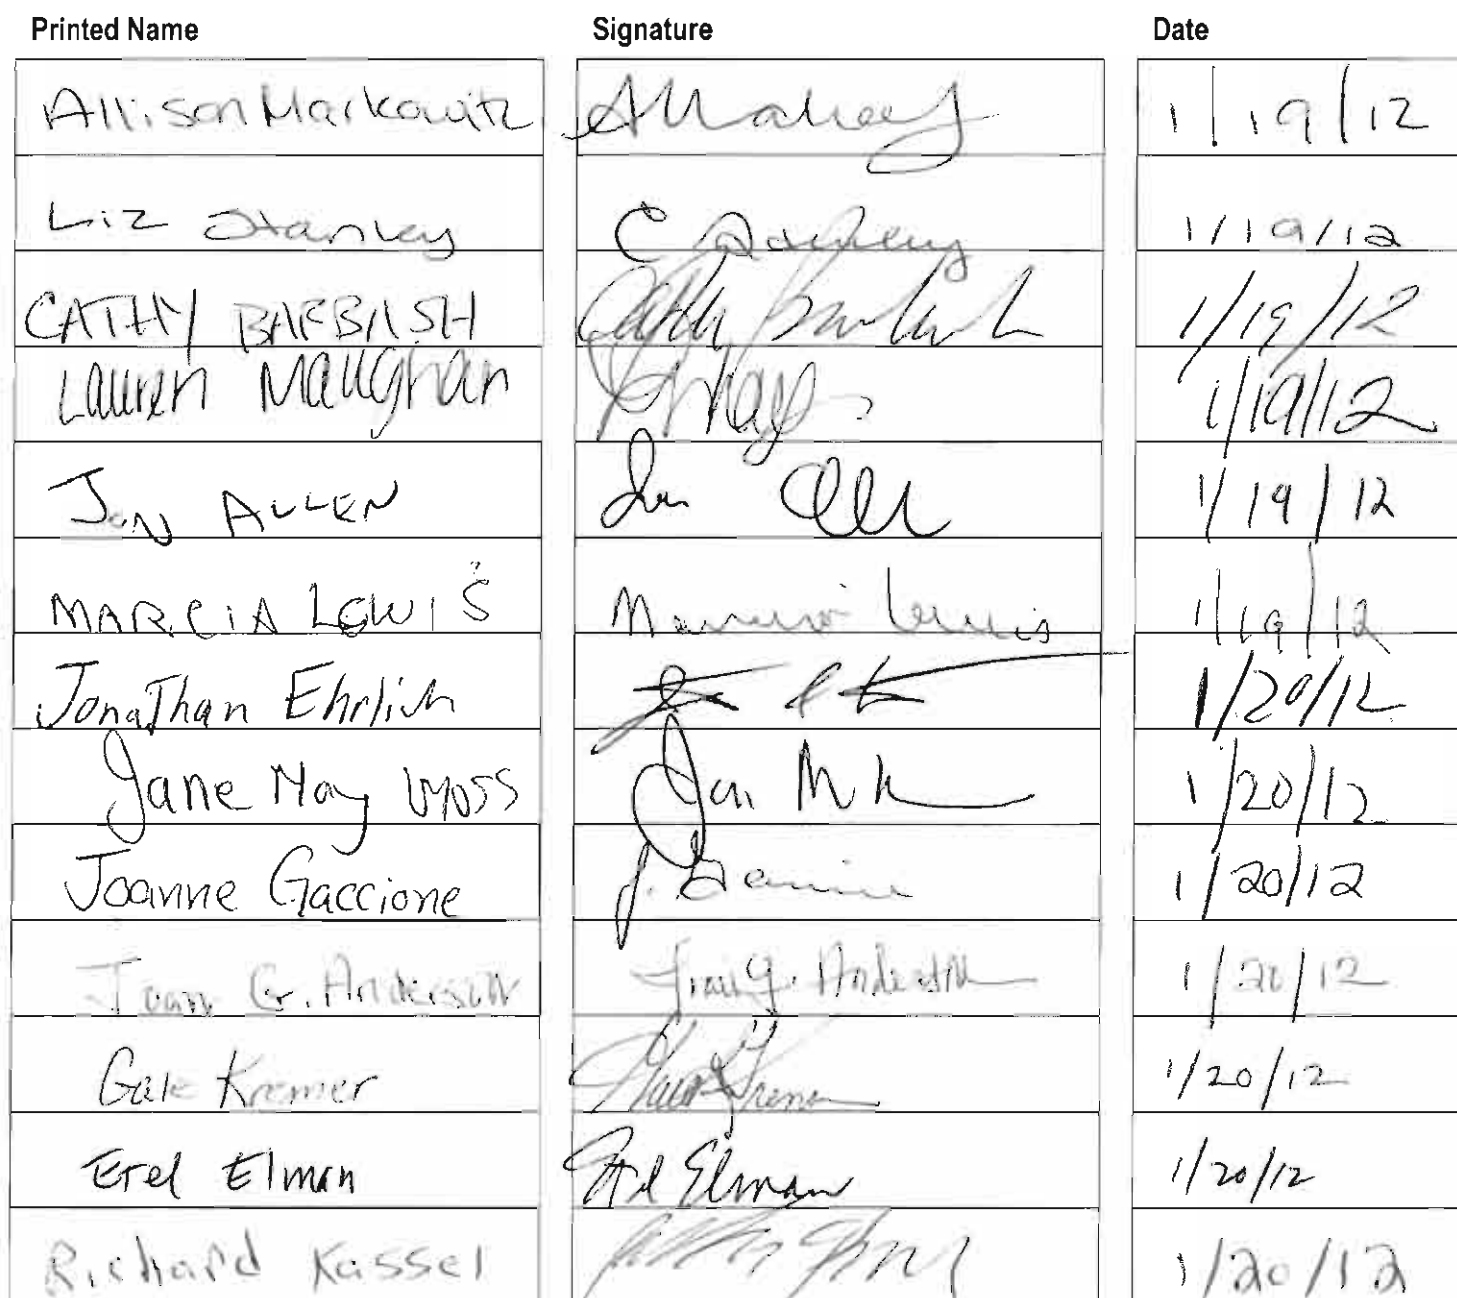 Printed Name Signature Date
Allison Markowitz 1/19/12
Liz Stanley C Stanley 1/19/12
CATHY BARBASH Cathy Barbash 1/19/12
Lauren Maughan 1/19/12
JON ALLEN Jon Allen 1/19/12
MARCIA LEWIS Marcia Lewis 1/19/12
Jonathan Ehrlich 1/20/12
Jane May 1/20/12
Joanne Gaccione J. 1/20/12
Joan G. Anderson Joan G. Anderson 1/20/12
Gale Kremer Gale Kremer 1/20/12
Etel Elman Etel Elman 1/20/12
Richard Kassel 1/20/12